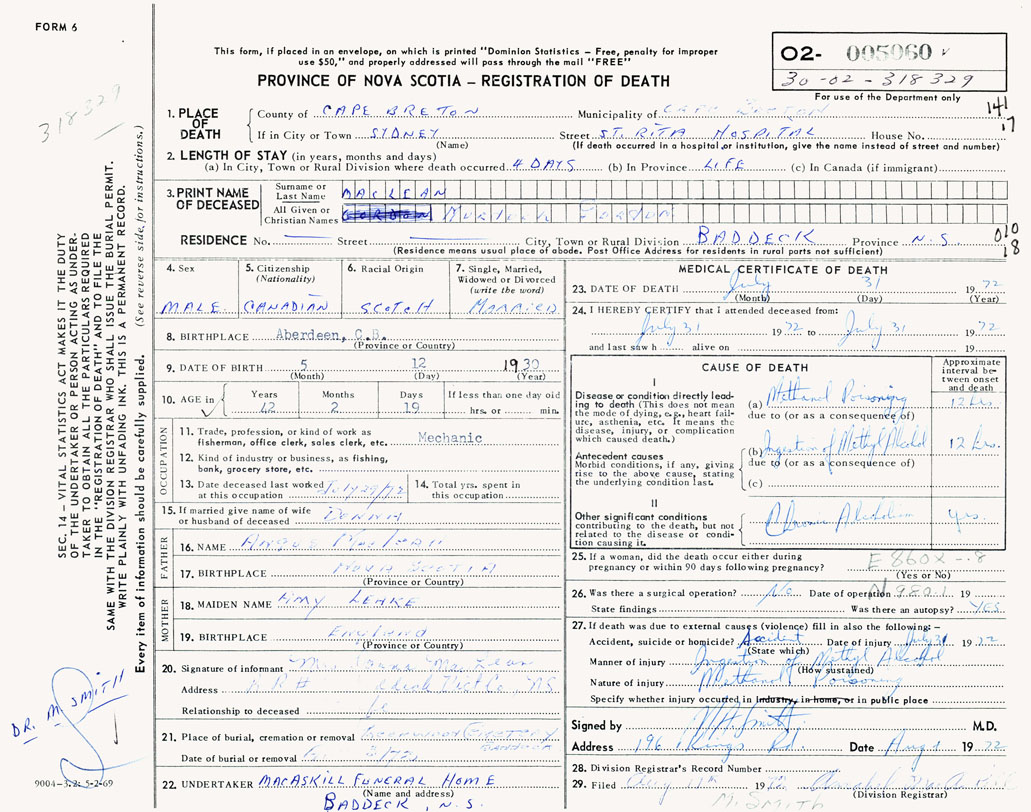 FORM 6
This form, if placed in an envelope, on which is printed "Dominion Statistics – Free, penalty for improper
use $50," and properly addressed will pass through the mail "FREE"
PROVINCE OF NOVA SCOTIA – REGISTRATION OF DEATH
O2- 005060
30-02-318329
For use of the Department only
318329
141
17
1. PLACE OF DEATH
County of CAPE BRETON Municipality of CAPE BRETON
If in City or Town SYDNEY Street ST. RITA HOSPITAL House No.
(Name) (If death occurred in a hospital or institution, give the name instead of street and number)
2. LENGTH OF STAY (in years, months and days)
(a) In City, Town or Rural Division where death occurred 4 DAYS (b) In Province LIFE (c) In Canada (if immigrant)
3. PRINT NAME OF DECEASED
Surname or Last Name MACLEAN
All Given or Christian Names GORDON Murdock Gordon
RESIDENCE No. Street City, Town or Rural Division BADDECK Province N.S.
(Residence means usual place of abode. Post Office Address for residents in rural parts not sufficient)
010
18
4. Sex MALE
5. Citizenship (Nationality) CANADIAN
6. Racial Origin SCOTCH
7. Single, Married, Widowed or Divorced (write the word) MARRIED
8. BIRTHPLACE Aberdeen, C.B.
(Province or Country)
9. DATE OF BIRTH 5 12 1930
(Month) (Day) (Year)
10. AGE in Years 42 Months 2 Days 19 If less than one day old hrs. or min.
OCCUPATION
11. Trade, profession, or kind of work as
fisherman, office clerk, sales clerk, etc. Mechanic
12. Kind of industry or business, as fishing,
bank, grocery store, etc.
13. Date deceased last worked
at this occupation July 29/72
14. Total yrs. spent in
this occupation
15. If married give name of wife
or husband of deceased DONNA
FATHER
16. NAME Angus MacLean
17. BIRTHPLACE NOVA SCOTIA
(Province or Country)
MOTHER
18. MAIDEN NAME AMY LEAKE
19. BIRTHPLACE ENGLAND
(Province or Country)
20. Signature of informant Mrs. Donna MacLean
Address Baddeck Vict Co NS
Relationship to deceased
21. Place of burial, cremation or removal Greenwood Cemetery
BADDECK
Date of burial or removal
22. UNDERTAKER MACASKILL FUNERAL HOME
(Name and address)
BADDECK, N.S.
MEDICAL CERTIFICATE OF DEATH
23. DATE OF DEATH July 31 1972
(Month) (Day) (Year)
24. I HEREBY CERTIFY that I attended deceased from:
July 31 1972 to July 31 1972
and last saw h alive on 19
CAUSE OF DEATH
Approximate interval between onset and death
I
Disease or condition directly leading to death (This does not mean the mode of dying, e.g., heart failure, asthenia, etc. It means the disease, injury, or complication which caused death.)
(a) Methanol Poisoning 12 hrs.
due to (or as a consequence of)
Antecedent causes
Morbid conditions, if any, giving rise to the above cause, stating the underlying condition last.
(b) Ingestion of Methyl Alcohol 12 hrs.
due to (or as a consequence of)
(c)
II
Other significant conditions
contributing to the death, but not related to the disease or condition causing it.
Chronic Alcoholism yrs.
25. If a woman, did the death occur either during
pregnancy or within 90 days following pregnancy?
(Yes or No)
E860X -.8
N980.1
26. Was there a surgical operation? No Date of operation 19
State findings Was there an autopsy? YES
27. If death was due to external causes (violence) fill in also the following:–
Accident, suicide or homicide? Accident Date of injury July 31 1972
(State which)
Manner of injury Ingestion of Methyl Alcohol
(How sustained)
Nature of injury Methanol Poisoning
Specify whether injury occurred in industry, in home, or in public place
Signed by M.D.
Address 196 Kings Rd. Date Aug 1 1972
28. Division Registrar's Record Number
29. Filed Aug 11th 1972
(Division Registrar)
M. SMITH
SEC. 14 – VITAL STATISTICS ACT MAKES IT THE DUTY
OF THE UNDERTAKER OR PERSON ACTING AS UNDER-
TAKER TO OBTAIN ALL THE PARTICULARS REQUIRED
IN THE "REGISTRATION OF DEATH" AND TO FILE THE
SAME WITH THE DIVISION REGISTRAR WHO SHALL ISSUE THE BURIAL PERMIT.
WRITE PLAINLY WITH UNFADING INK. THIS IS A PERMANENT RECORD.
Every item of information should be carefully supplied. (See reverse side for instructions.)
DR. M. SMITH
9004-3.2: 5-2-69